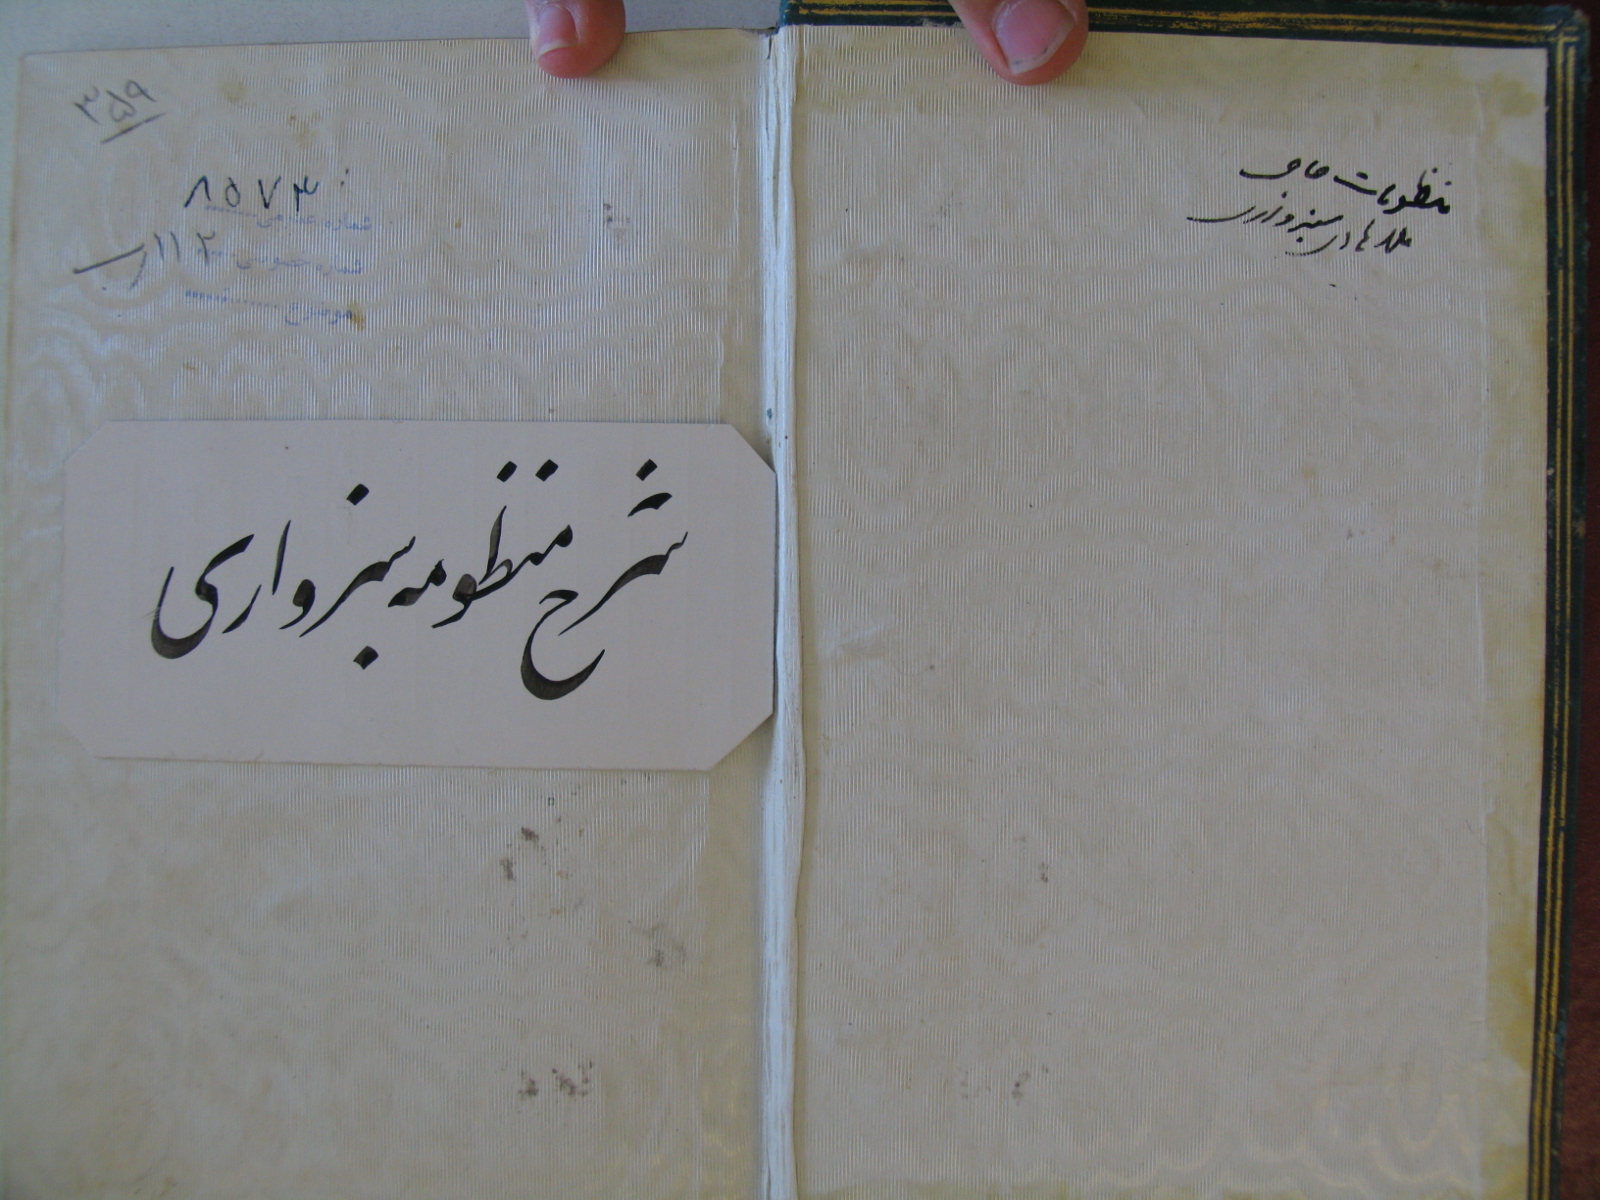 منظومات حاجی
ملا هادی سبزواری
۳۵۹
۸۵۷۳
شماره عمومی
۱۱۲ ب
شماره خصوصی
موضوع
شرح منظومه سبزواری